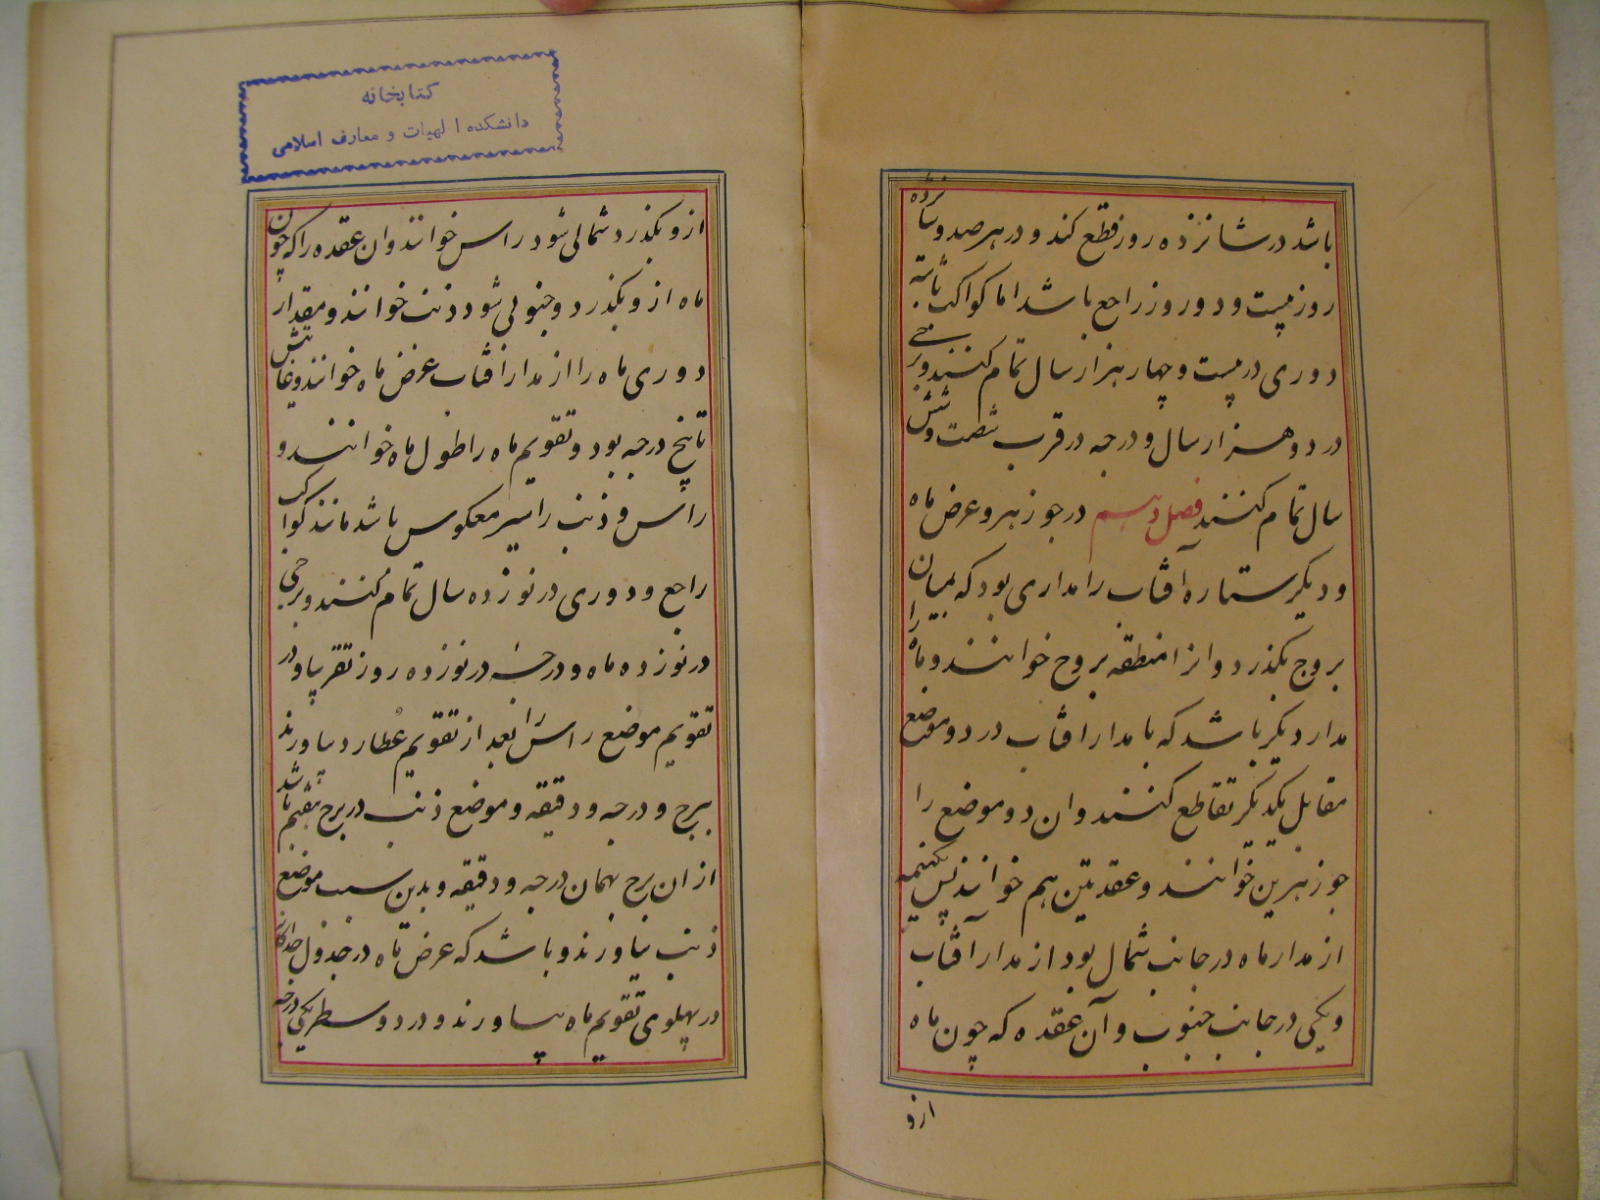 باشد در شانزده روز قطع کند و در هر صد و شانزده
روز بیست و دو روز راجع باشد اما کواکب ثابته
دوری در بیست و چهار هزار سال تمام کنند و برجی
در دو هزار سال و درجه در قرب شصت و شش
سال تمام کنند فصل دهم در جوزهر و عرض ماه
و دیکر ستاره آفتاب را مداری بود که بمیان
بروج بکذرد و انرا منطقه بروج خوانند و ماه را
مدار دیکر باشد که با مدار افتاب در دو موضع
مقابل یکدیکر تقاطع کنند و ان دو موضع را
جوزهرین خوانند و عقدتین هم خوانند پس نیمه
از مدار ماه در جانب شمال بود از مدار آفتاب
و یکی در جانب جنوب و آن عقده که چون ماه
ازو
کتابخانه
دانشکده الهیات و معارف اسلامی
ازو بکذرد شمالی شود راس خوانند و ان عقده را که چون
ماه ازو بکذرد و جنوبی شود ذنب خوانند و مقدار
دوری ماه را از مدار افتاب عرض ماه خوانند و غایتش
تا پنج درجه بود و تقویم ماه را طول ماه خوانند و
راس و ذنب را سیر معکوس باشد مانند کواکب
راجع و دوری در نوزده سال تمام کنند و برجی
در نوزده ماه و درجه در نوزده روز تقریبا و در
تقویم موضع راس را بعد از تقویم عطارد بیاورند
ببرج و درجه و دقیقه و موضع ذنب در برج هفتم باشد
از ان برج بهمان درجه و دقیقه و بدین سبب موضع
ذنب نیاورند و باشد که عرض ماه در جدول جداکانه
در پهلوی تقویم ماه بیاورند و در دو سطر یکی درجه